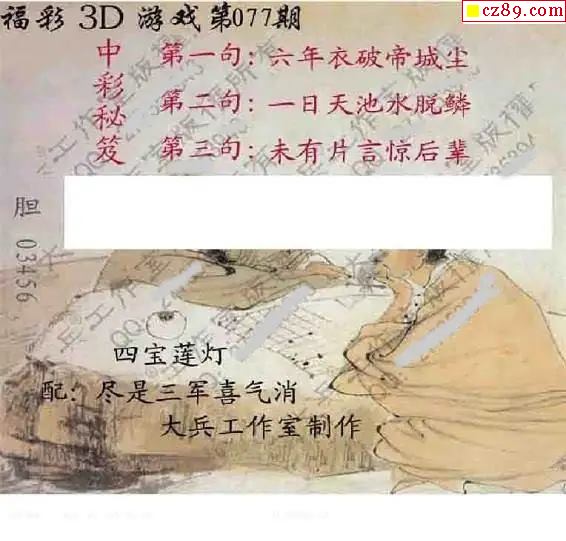 cz89.com
福彩 3D 游戏 第077期
中彩秘笈
第一句：六年衣破帝城尘
第二句：一日天池水脱鳞
第三句：未有片言惊后辈
胆 03456
四宝莲灯
配：尽是三军喜气消
大兵工作室制作